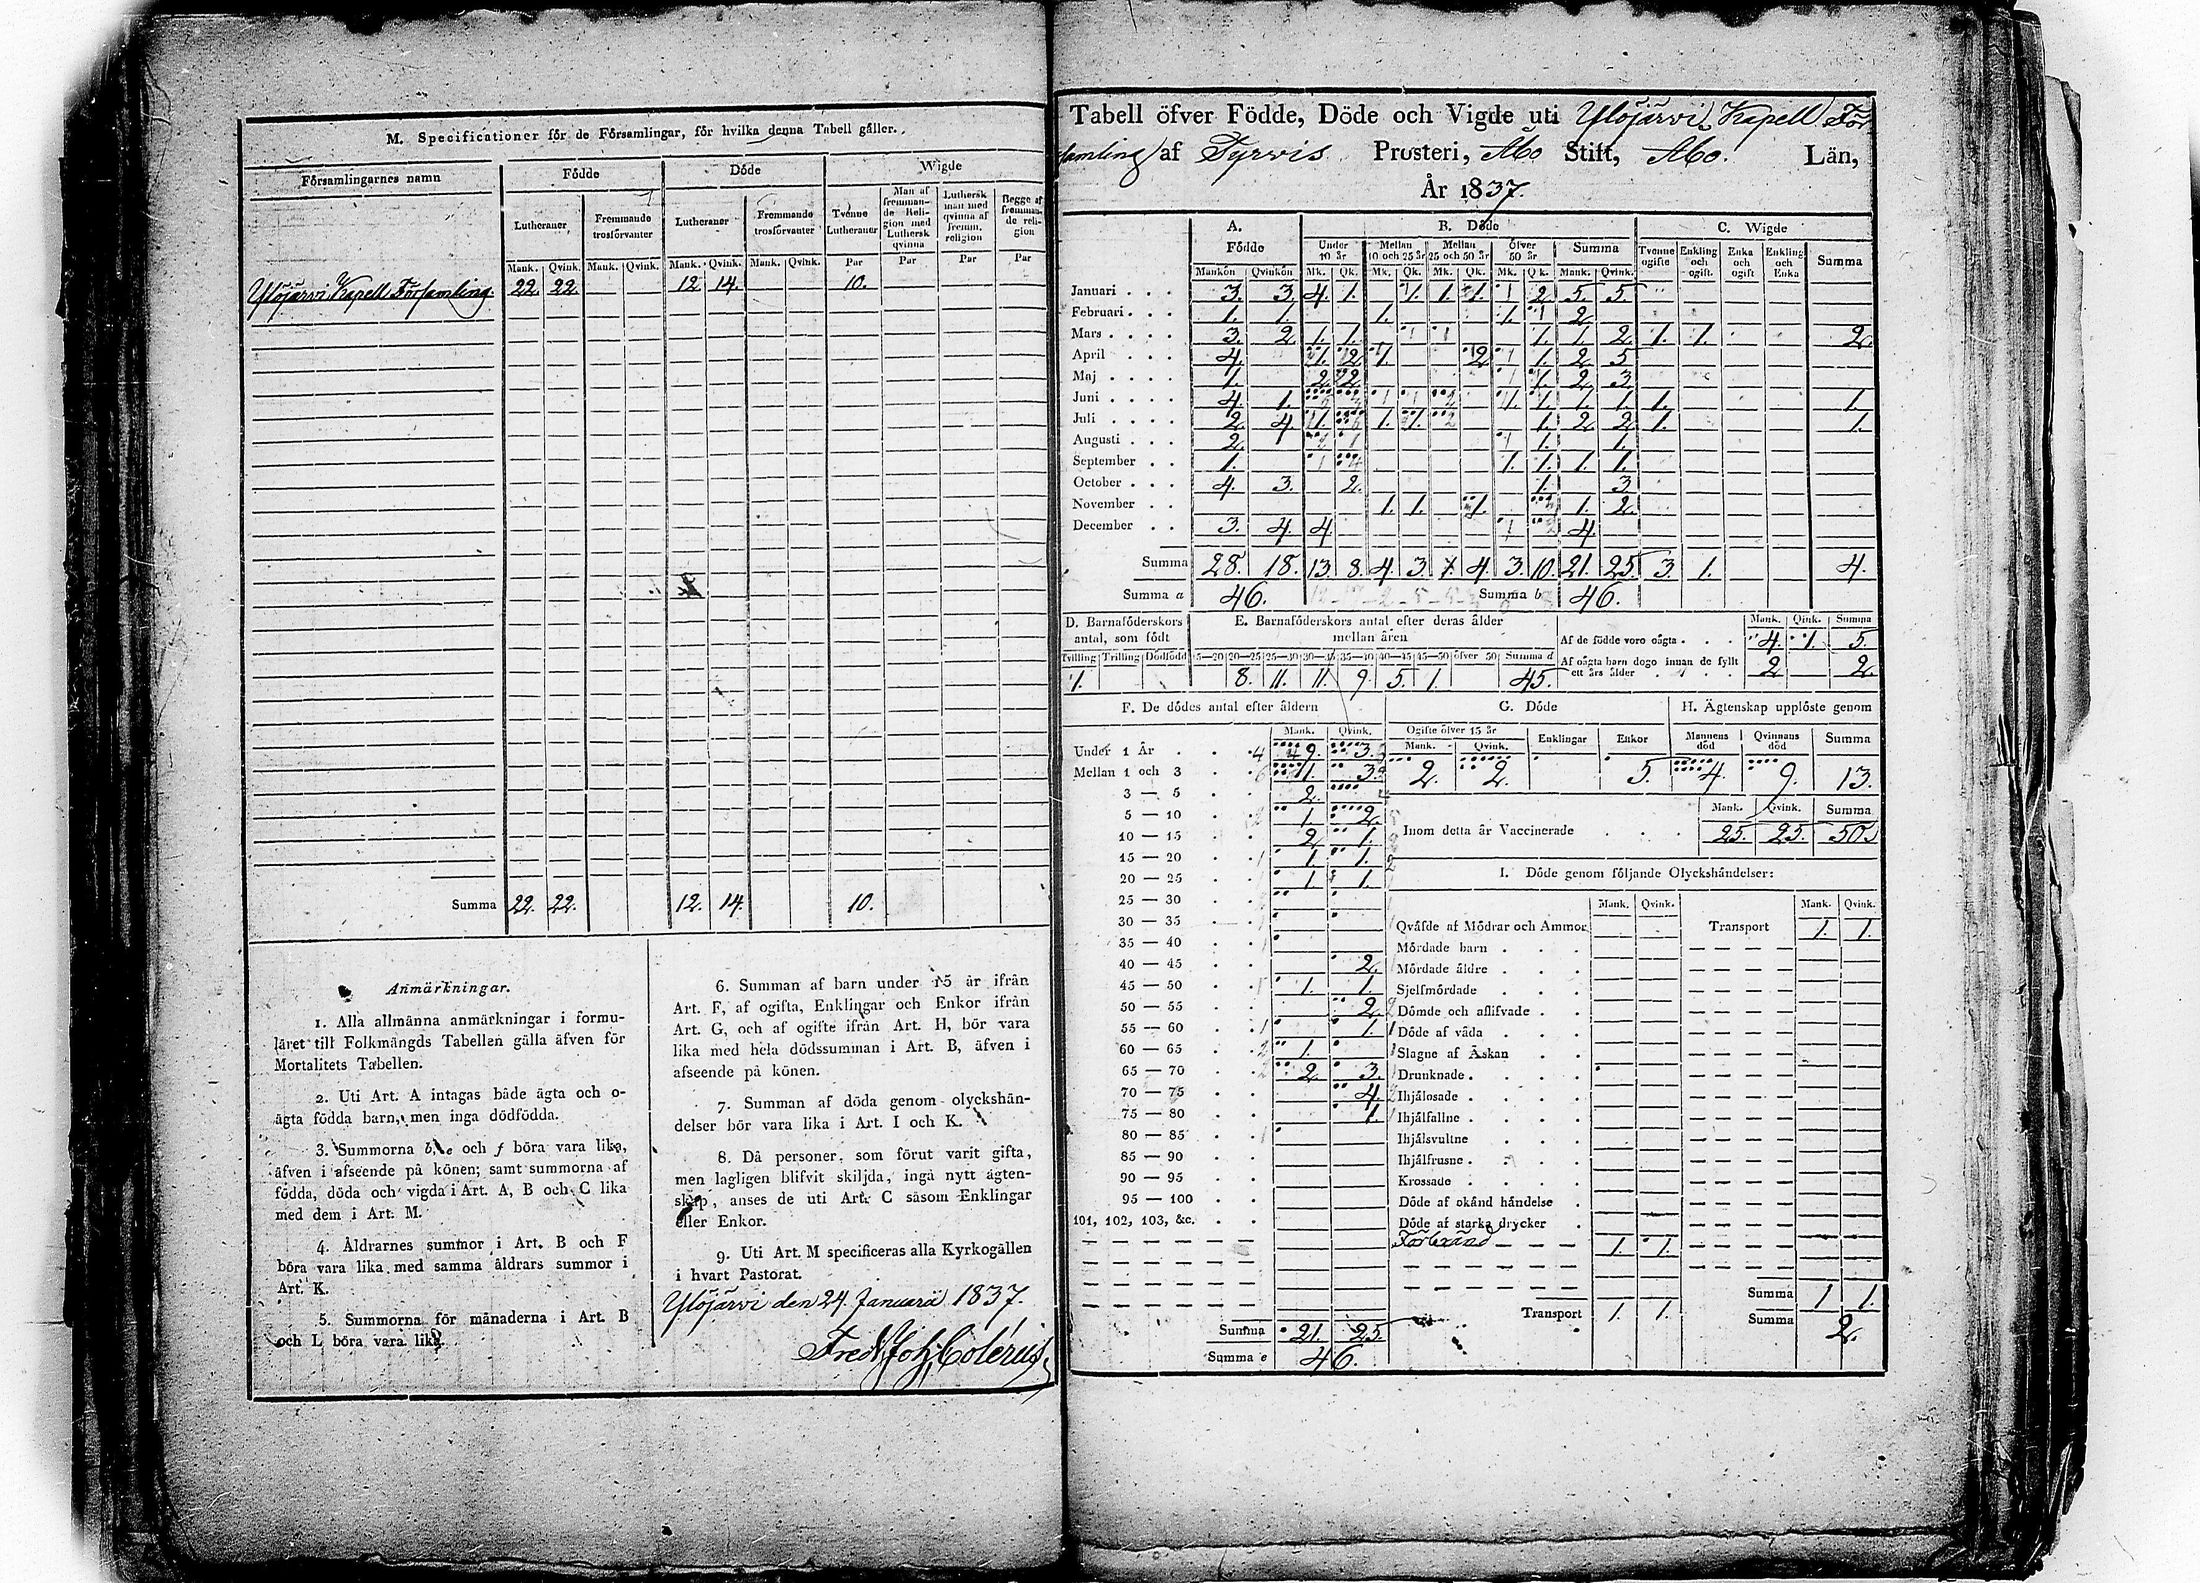 M. Specificationer för de Församlingar, för hvilka denna Tabell gäller.
Församlingarnes namn Födde Döde Wigde
Lutheraner Fremmande trosförvanter Lutheraner Fremmande trosförvanter Tvenne Lutheraner Man af fremmande Religion med Luthersk qvinna Luthersk man med qvinna af fremm. religion Begge af fremmande religion
Mank. Qvink. Mank. Qvink. Mank. Qvink. Mank. Qvink. Par Par Par Par
Ylöjärvi Kapell Församling 22. 22. 12 14. 10.
Summa 22. 22. 12. 14. 10.
Anmärkningar.
1. Alla allmänna anmärkningar i formu-
läret till Folkmängds Tabellen gälla äfven för
Mortalitets Tabellen.
2. Uti Art. A intagas både ägta och o-
ägta födda barn, men inga dödfödda.
3. Summorna b, e och f böra vara lika,
äfven i afseende på könen; samt summorna af
födda, döda och vigda i Art. A, B och C lika
med dem i Art. M.
4. Åldrarnes summor i Art. B och F
böra vara lika med samma åldrars summor i
Art. K.
5. Summorna för månaderna i Art. B
och L böra vara lika.
6. Summan af barn under 15 år ifrån
Art. F, af ogifta, Enklingar och Enkor ifrån
Art. G, och af ogifte ifrån Art. H, bör vara
lika med hela dödssumman i Art. B, äfven i
afseende på könen.
7. Summan af döda genom olyckshän-
delser bör vara lika i Art. I och K.
8. Då personer, som förut varit gifta,
men lagligen blifvit skiljda, ingå nytt ägten-
skap, anses de uti Art. C såsom Enklingar
eller Enkor.
9. Uti Art. M specificeras alla Kyrkogällen
i hvart Pastorat.
Ylöjärvi den 24. Januarii 1837.
Fredr Joh Colérus
Tabell öfver Födde, Döde och Vigde uti Ylöjärvi Kapell För
samling af Tyrvis Prosteri, Åbo Stift, Åbo. Län,
År 1837.
A. Födde B. Döde C. Wigde
Under 10 år Mellan 10 och 25 år Mellan 25 och 50 år öfver 50 år Summa Tvenne ogifte Enkling och ogift. Enka och ogift Enkling och Enka Summa
Mankön Qvinkön Mk. Qk. Mk. Qk. Mk. Qk. Mk. Qk. Mank. Qvink.
Januari 3. 3. 4. 1. 1. 1. 1. 2. 5. 5.
Februari 1. 1. 1. 1. 2.
Mars 3. 2. 1. 1. 1. 1. 2. 1. 1. 2.
April 4. 1. 2. 1. 2. 1. 2. 5.
Maj 1. 2. 2. 1. 2. 3.
Juni 4. 1. 1. 1. 1. 1. 1. 1.
Juli 2. 4. 1. 1. 1. 1. 2. 2. 1. 1.
Augusti 2. 1. 1.
September 1. 1. 1. 1. 1.
October 4. 3. 2. 1. 3.
November 1. 1. 1. 1. 2.
December 3. 4. 4. 4.
Summa 28. 18. 13. 8. 4. 3. 1. 4. 3. 10. 21. 25. 3. 1. 4.
Summa a 46. Summa b 46.
D. Barnaföderskors antal, som födt
Tvilling Trilling Dödfödd
1.
E. Barnaföderskors antal efter deras ålder mellan åren
15—20 20—25 25—30 30—35 35—40 40—45 45—50 öfver 50 Summa d
8. 11. 11. 9. 5. 1. 45.
Mank. Qink. Summa
Af de födde voro oägta 4. 1. 5.
Af oägta barn dogo innan de fyllt ett års ålder 2 2.
F. De dödes antal efter åldern
Mank. Qvink.
Under 1 År 9. 3.
Mellan 1 och 3 1. 3.
3 — 5 2.
5 — 10 1. 2.
10 — 15 2. 1.
15 — 20 1. 1.
20 — 25 1. 1.
25 — 30
30 — 35
35 — 40
40 — 45 2.
45 — 50 1. 1.
50 — 55 2.
55 — 60 1.
60 — 65 1.
65 — 70 2. 3.
70 — 75 4.
75 — 80 1.
80 — 85
85 — 90
90 — 95
95 — 100
101, 102, 103, &c.
Summa 21. 25.
Summa e 46.
G. Döde
Ogifte öfver 15 år Enklingar Enkor
Mank. Qvink.
2. 2. 5.
H. Ägtenskap upplöste genom
Mannens död Qvinnans död Summa
4. 9. 13.
Mank. Qvink. Summa
Inom detta år Vaccinerade 25. 25. 50.
I. Döde genom följande Olyckshändelser:
Mank. Qvink. Mank. Qvink.
Qväfde af Mödrar och Ammor Transport 1. 1.
Mördade barn
Mördade äldre
Sjelfmördade
Dömde och aflifvade
Döde af våda
Slagne af Åskan
Drunknade
Ihjälosade
Ihjälfallne
Ihjälsvultne
Ihjälfrusne
Krossade
Döde af okänd händelse
Döde af starka drycker
Förbränd 1. 1.
Summa 1 1.
Transport 1. 1. Summa 2.